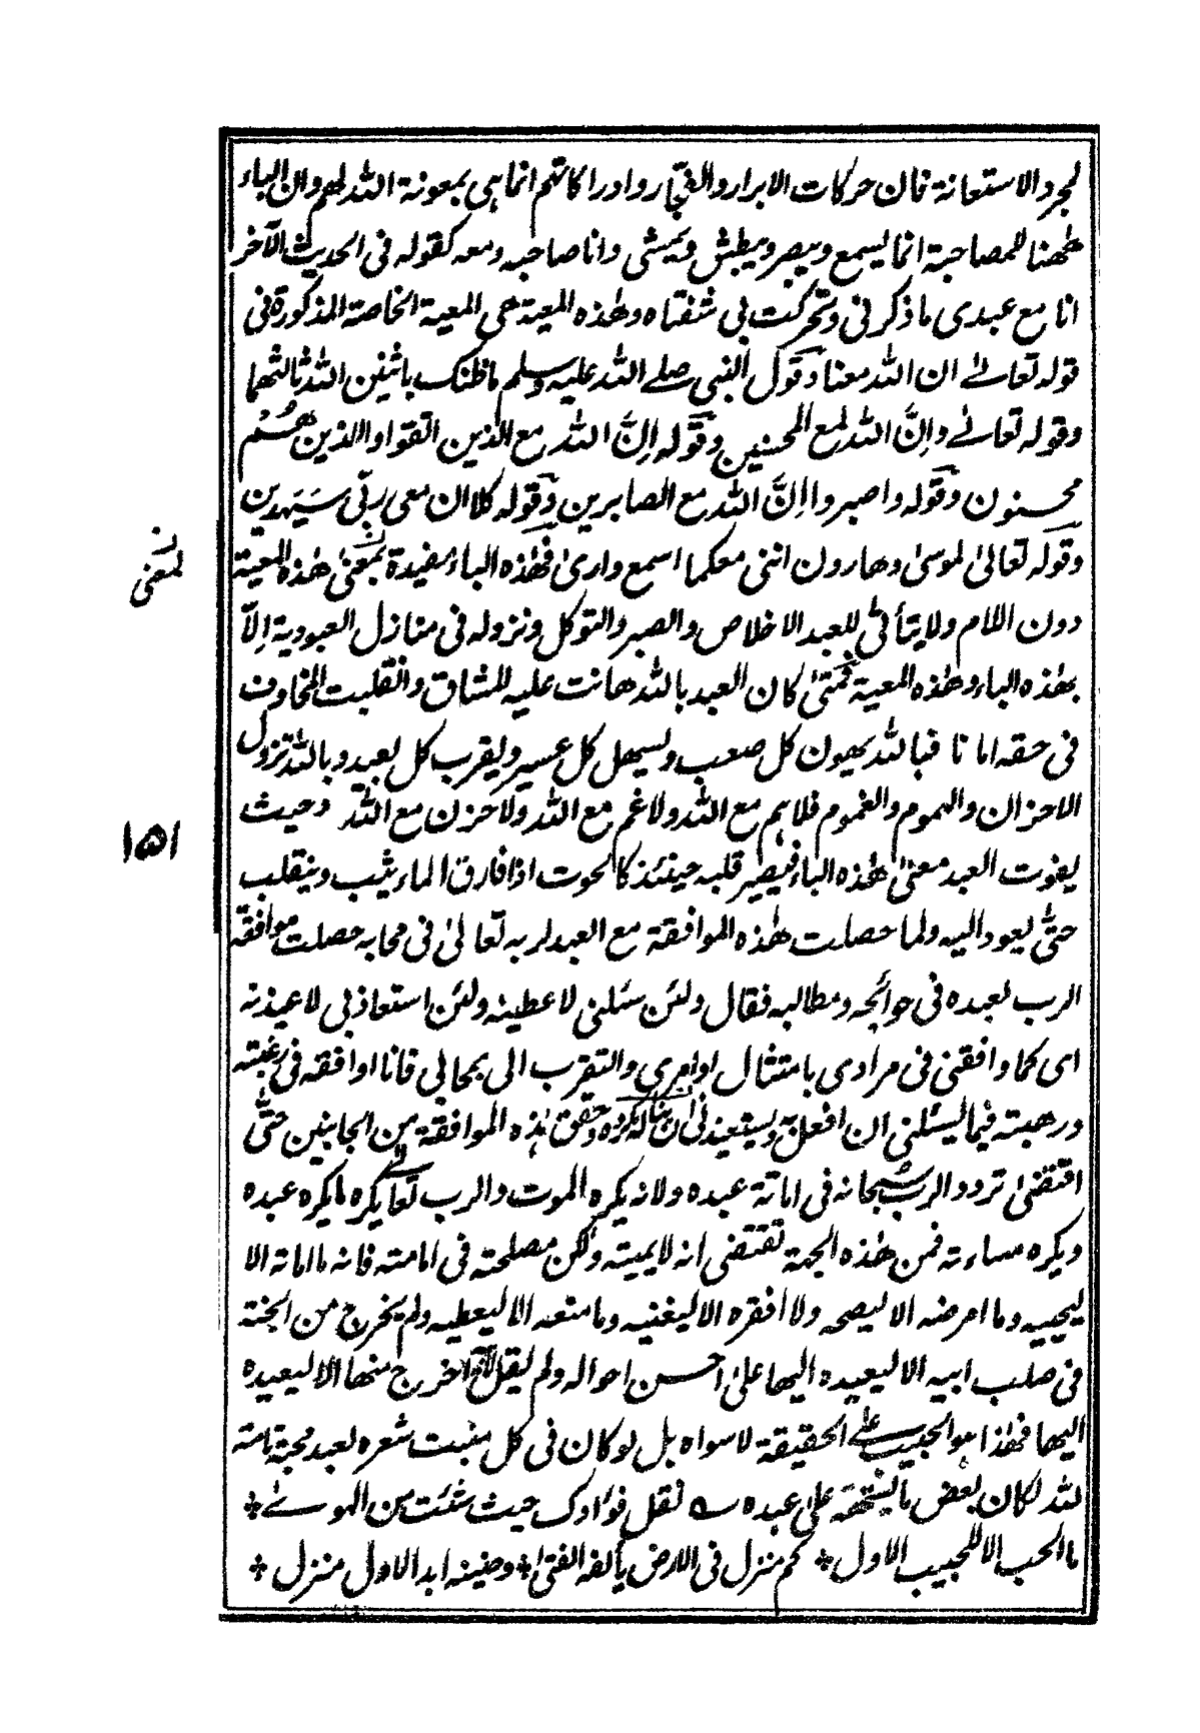 لمجرد الاستعانة فان حركات الابرار والفجّار وادراكاتهم انما هي بمعونة الله لهم وان الباء
ههنا للمصاحبة انما يسمع ويبصر ويبطش ويمشى وانا صاحبه ومعه كقوله فى الحديث الآخر
انا مع عبدى ما ذكرنى وتحركت بى شفتاه وهذه المعية هى المعية الخاصة المذكورة فى
قوله تعالىٰ ان الله معنا وقول النبى صلے الله عليه وسلم ما ظنك باثنين الله ثالثهما
وقوله تعالىٰ وإنَّ الله لمع المحسنين وقوله إنَّ الله مع الذين اتقوا والذين هُمْ
محسنون وقوله واصبروا إنَّ الله مع الصابرين وقوله كلا ان معى ربّى سَيَهدين
وقوله تعالىٰ لموسىٰ وهارون اننى معكما اسمع وارىٰ فهٰذه الباء مفيدة بمعنىٰ هٰذه المعية
لمعنى
دون اللام ولا يتأتّى للعبد الاخلاص والصبر والتوكل ونزوله فى منازل العبودية إلّا
بهٰذه الباء وهٰذه المعية فمتىٰ كان العبد بالله هانت عليه المشاق وانقلبت المخاوف
فى حقه امانا فبالله يهون كل صعب ويسهل كل عسير ويقرب كل بعيد وبالله تزول
الاحزان والهموم والغموم فلا هم مع الله ولا غم مع الله ولا حزن مع الله وحيث
١٥١
يفوت العبد معنىٰ هٰذه الباء فيصير قلبه حينئذ كالحوت اذا فارق الماء يثب وينقلب
حتّٰى يعود اليه ولما حصلت هٰذه الموافقة مع العبد لربه تعالىٰ فى محابه حصلت موافقة
الرب لعبده فى حوائجه ومطالبه فقال ولئن سئلنى لاعطينه ولئن استعاذ بى لاعيذنه
اى كما وافقنى فى مرادى بامتثال اوامرى والتقرب الى بمحابى فانا اوافقه فى رغبته
ورهبته فيما يسئلنى ان افعل به ويستعيذ بى ان يناله مكروه وحقق هٰذه الموافقة من الجانبين حتّٰى
اقتضىٰ تردد الرب سُبحانه فى اماتة عبده ولانه يكره الموت والرب تعالىٰ يكره ما يكره عبده
ويكره مساءته فمن هٰذه الجهة تقتضى انه لا يميته ولكن مصلحته فى اماتته فانه ما اماته الا
ليحييه وما امرضه الا ليصحه ولا افقره الا ليغنيه وما منعه الا ليعطيه ولم يخرج من الجنة
فى صلب ابيه الا ليعيده اليها علىٰ احسن احواله ولم يقل لابيه اخرج منها الا ليعيده
اليها فهٰذا هو الحبيب علے الحقيقة لا سواه بل لو كان فى كل منبت شعرة لعبد محبة تامة
لله لكان بعض ما يستحقه علىٰ عبده ؎ نقل فؤادك حيث شئت من الهوىٰ ❊
ما الحب الا للحبيب الاول ❊ كم منزل فى الارض يألفه الفتىٰ ❊ وحنينه ابدا لاول منزل ❊